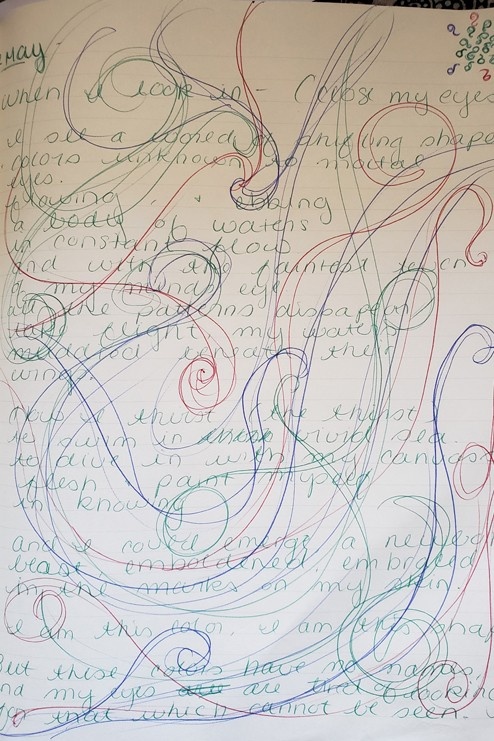 when I look in - (close my eyes
I see a world of shifting shape
colors unknown to mortal
eyes.
flowing, ebbing
a body of waters
in constant flow
and with the faintest touch
of my mind eye
can the patterns disappear
take flight my water
beneath their
wings.
now I thirst (the thirst
to swim in vivid sea.
to dive in with my canvas
flesh paint myself
in knowing
and I could emerge a new
beast, emboldened, embraced
in the marks on my skin.
I am this color, I am this shape
But these colors have no names,
and my eyes are are tired of looking
to that which cannot be seen.